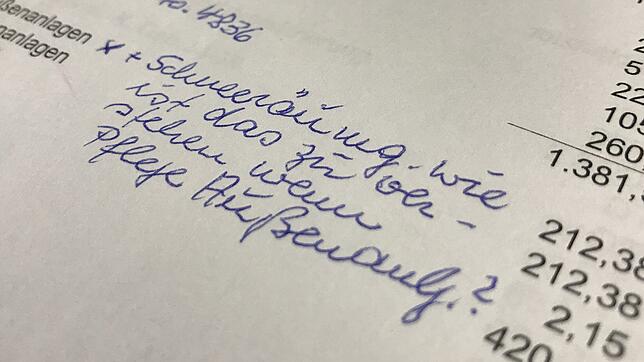 No. 4836
ßenanlagen
nanlagen
* + Schneeräumung. wie
ist das zu ver-
stehen wenn
Pflege Außenanlg.?
22
105
260,
1.381,
212,38
212,38
2,15
420